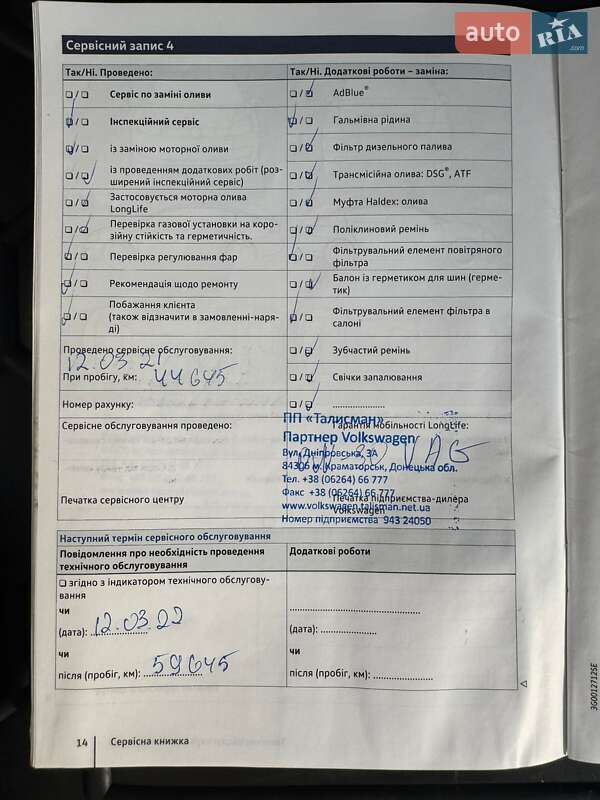 auto RIA .com
Сервісний запис 4
Так/Ні. Проведено:
☐ / ☐ Сервіс по заміні оливи
☐ / ☐ Інспекційний сервіс
☐ / ☐ із заміною моторної оливи
☐ / ☐ із проведенням додаткових робіт (роз-
ширений інспекційний сервіс)
☐ / ☐ Застосовується моторна олива
LongLife
☐ / ☐ Перевірка газової установки на коро-
зійну стійкість та герметичність.
☐ / ☐ Перевірка регулювання фар
☐ / ☐ Рекомендація щодо ремонту
☐ / ☐ Побажання клієнта
(також відзначити в замовленні-наря-
ді)
Проведено сервісне обслуговування:
12.03.21
При пробігу, км: 44645
Номер рахунку:
Сервісне обслуговування проведено:
Печатка сервісного центру
Так/Ні. Додаткові роботи – заміна:
☐ / ☐ AdBlue®
☐ / ☐ Гальмівна рідина
☐ / ☐ Фільтр дизельного палива
☐ / ☐ Трансмісійна олива: DSG®, ATF
☐ / ☐ Муфта Haldex: олива
☐ / ☐ Поліклиновий ремінь
☐ / ☐ Фільтрувальний елемент повітряного
фільтра
☐ / ☐ Балон із герметиком для шин (герме-
тик)
☐ / ☐ Фільтрувальний елемент фільтра в
салоні
☐ / ☐ Зубчастий ремінь
☐ / ☐ Свічки запалювання
☐ / ☐ ....................
Гарантія мобільності LongLife:
ПП «Талисман»
Партнер Volkswagen
Вул. Дніпровська, 3А
84306 м. Краматорськ, Донецька обл.
Тел. +38 (06264) 66 777
Факс +38 (06264) 66 777
www.volkswagen.talisman.net.ua
Номер підприємства 943 24050
VAG
Печатка підприємства-дилера
Volkswagen
Наступний термін сервісного обслуговування
Повідомлення про необхідність проведення
технічного обслуговування
☐ згідно з індикатором технічного обслугову-
вання
чи
(дата): 12.03.22
чи
після (пробіг, км): 59645
Додаткові роботи
(дата): ....................
чи
після (пробіг, км): ....................
3G0012712SE
14 Сервісна книжка